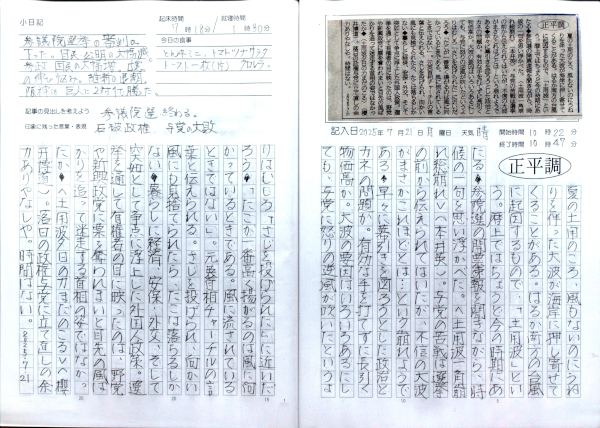 小日記
起床時間
7時18分
就寝時間
1時30分
参議院選挙の審判が
下った。自民 公明の大惨敗
参政 国民の大躍進 立憲
の伸び悩み。維新の退潮
阪神が巨人に2対1で勝った。
今日の食事
とんみそ汁、トマト ツナサラダ
トースト一枚(片) クロレラ。
記事の見出しを考えよう 参議院選 終わる。
印象に残った言葉・表現 石破政権、与党の大敗
正平調
記入日 2025年 7月21日 月曜日 天気 晴
開始時間 10時22分
終了時間 10時47分
正平調
夏の土用のころ、風もないのにうね
りを伴った大波が海岸に押し寄せて
くることがある。はるか南方の台風
に起因するもので、「土用波」とい
う。暦の上ではちょうど今の時期にあ
たる◆参院選の開票速報を聞きながら、時
候の一句を思い浮かべた。〈土用波一角崩
れ総崩れ〉(本井英)。与党の苦戦は選挙
の前から伝えられてはいたが、不信の大波
がまさかこれほどとは…という崩れようで
ある◆早々に幕引きを図ろうとした政治と
カネの問題か。有効な手を打てずに長引く
物価高か。大波の要因はいろいろあるにし
ても、与党に怒りの逆風が吹いたというよ
りはむしろ、「さじを投げられた」に近いだ
ろう◆「たこが一番高く揚がるのは風に向
かっているときである。風に流されている
ときではない」。元英首相チャーチルの言
葉と伝えられる。さじを投げられ、向かい
風にも見捨てられたら、たこは落ちるしか
ない◆暮らしに経済、安保・外交、そして
突如として争点に浮上した外国人政策。選
挙を通して有権者の目に映ったのは、野党
や新興政党に票を奪われまいと目先の風ば
かりを追って迷走する首相の姿ではなか
ったか◆〈土用波夕日の力まだのこる〉(櫻
井博道)。落日の政権与党に立て直しの余
力ありなしや。時間はない。
2025・7・21